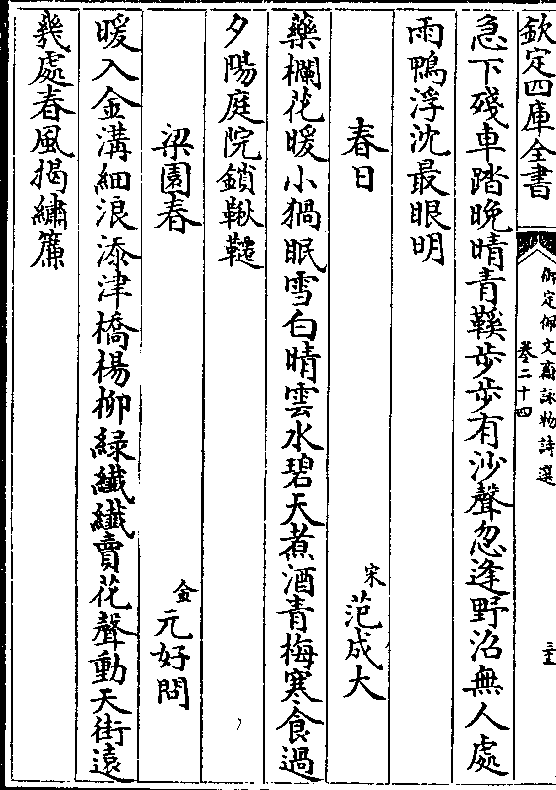 欽定四庫全書
御定佩文齋詠物詩選
卷二十四
急下殘車踏晩晴青鞵步步有沙聲忽逢野沼無人處
雨鴨浮沈最眼明
春日
宋 范成大
藥欄花暖小猧眠雪白晴雲水碧天煮酒青梅寒食過
夕陽庭院鎖鞦韆
梁園春
金 元好問
暖入金溝細浪添津橋楊栁緑纎纎賣花聲動天街遠
幾處春風揭繡簾